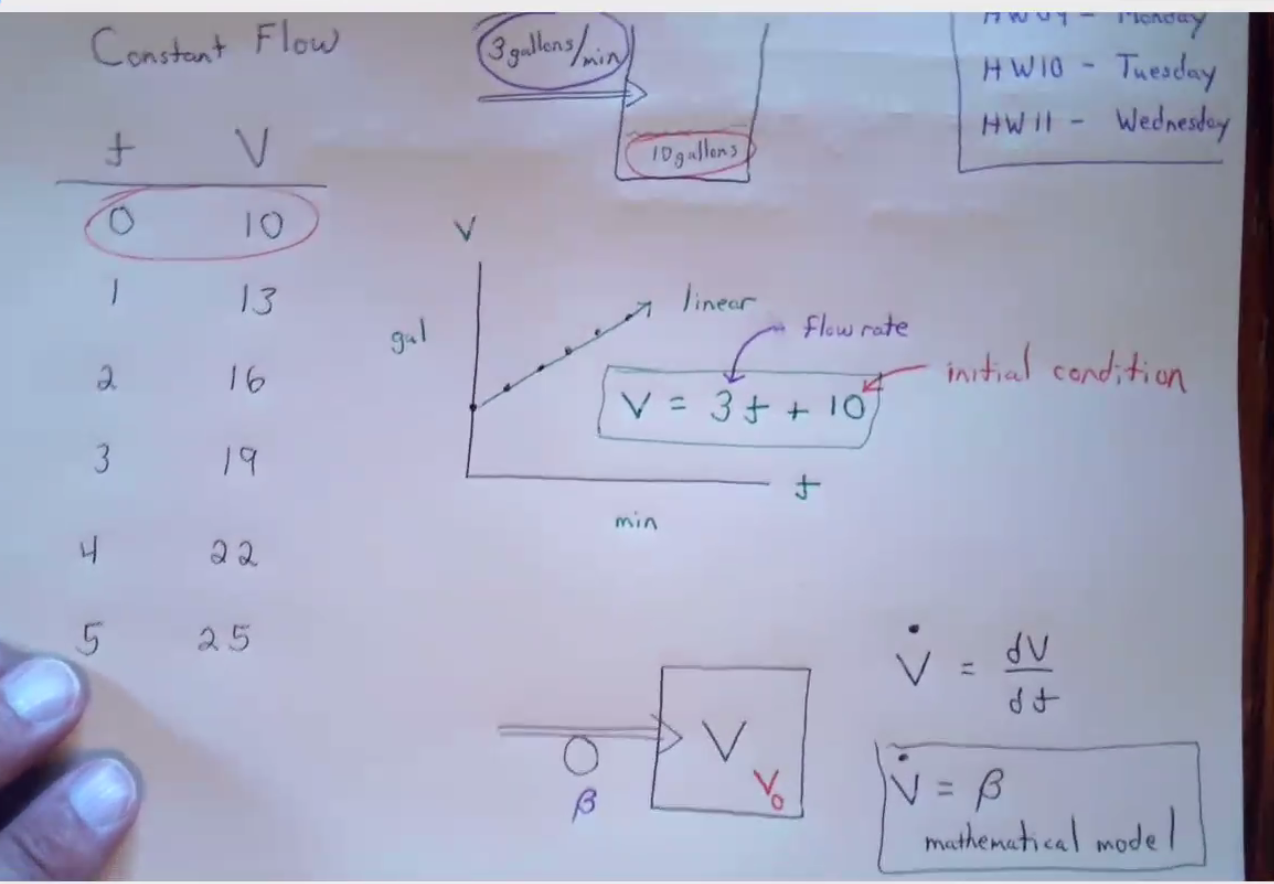 Constant Flow
t V
0 10
1 13
2 16
3 19
4 22
5 25
3 gallons/min
10 gallons
HW09 - Monday
HW10 - Tuesday
HW11 - Wednesday
V
gal
linear
flow rate
V = 3t + 10
initial condition
t
min
V
V₀
β
V̇ = dV/dt
V̇ = β
mathematical model